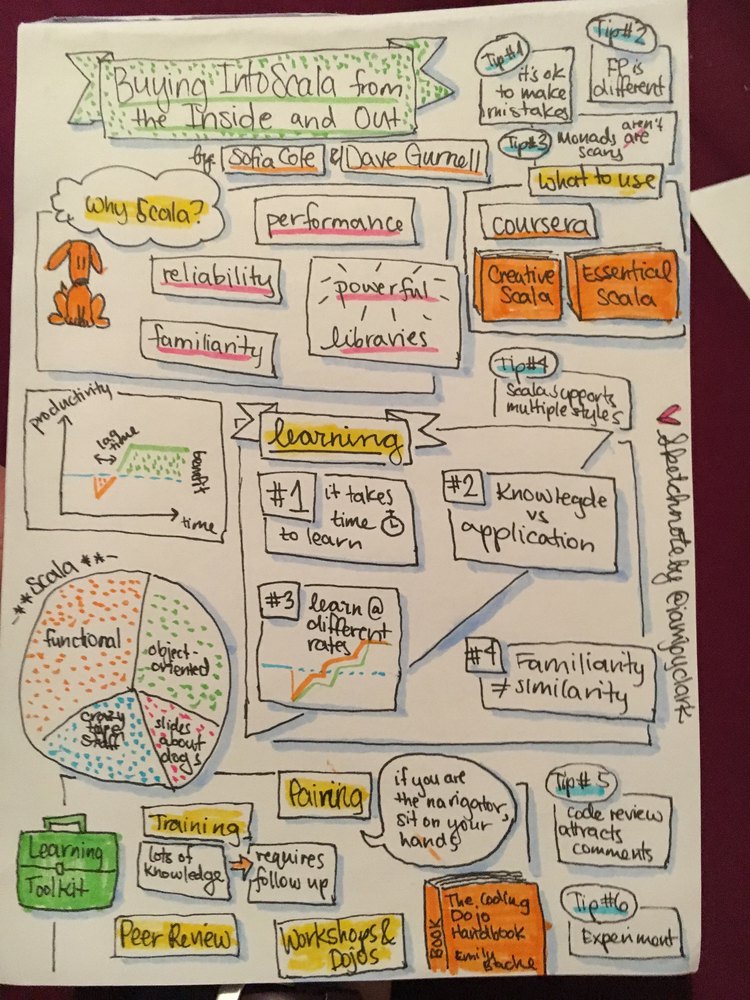 Buying Into Scala from
the Inside and Out
by Sofia Cole & Dave Gurnell
Tip#1
it's ok
to make
mistakes
Tip#2
FP is
different
Tip#3
Monads are
aren't
scary
Why Scala?
performance
reliability
powerful
libraries
familiarity
What to use
coursera
Creative
Scala
Essential
Scala
Tip#4
Scala supports
multiple styles
productivity
lag
time
benefit
time
learning
#1
it takes
time
to learn
#2
Knowlegde
vs
application
#3
learn @
different
rates
#4
Familiarity
≠ similarity
Sketchnote by @iamjoyclark
**Scala**
functional
object-
oriented
crazy
type
stuff
slides
about
dogs
Learning
Toolkit
Training
lots of
knowledge
requires
follow up
Pairing
if you are
the navigator,
sit on your
hands
Peer Review
Workshops &
Dojos
BOOK
The Coding
Dojo
Handbook
Emily
Bache
Tip#5
code review
attracts
comments
Tip#6
Experiment